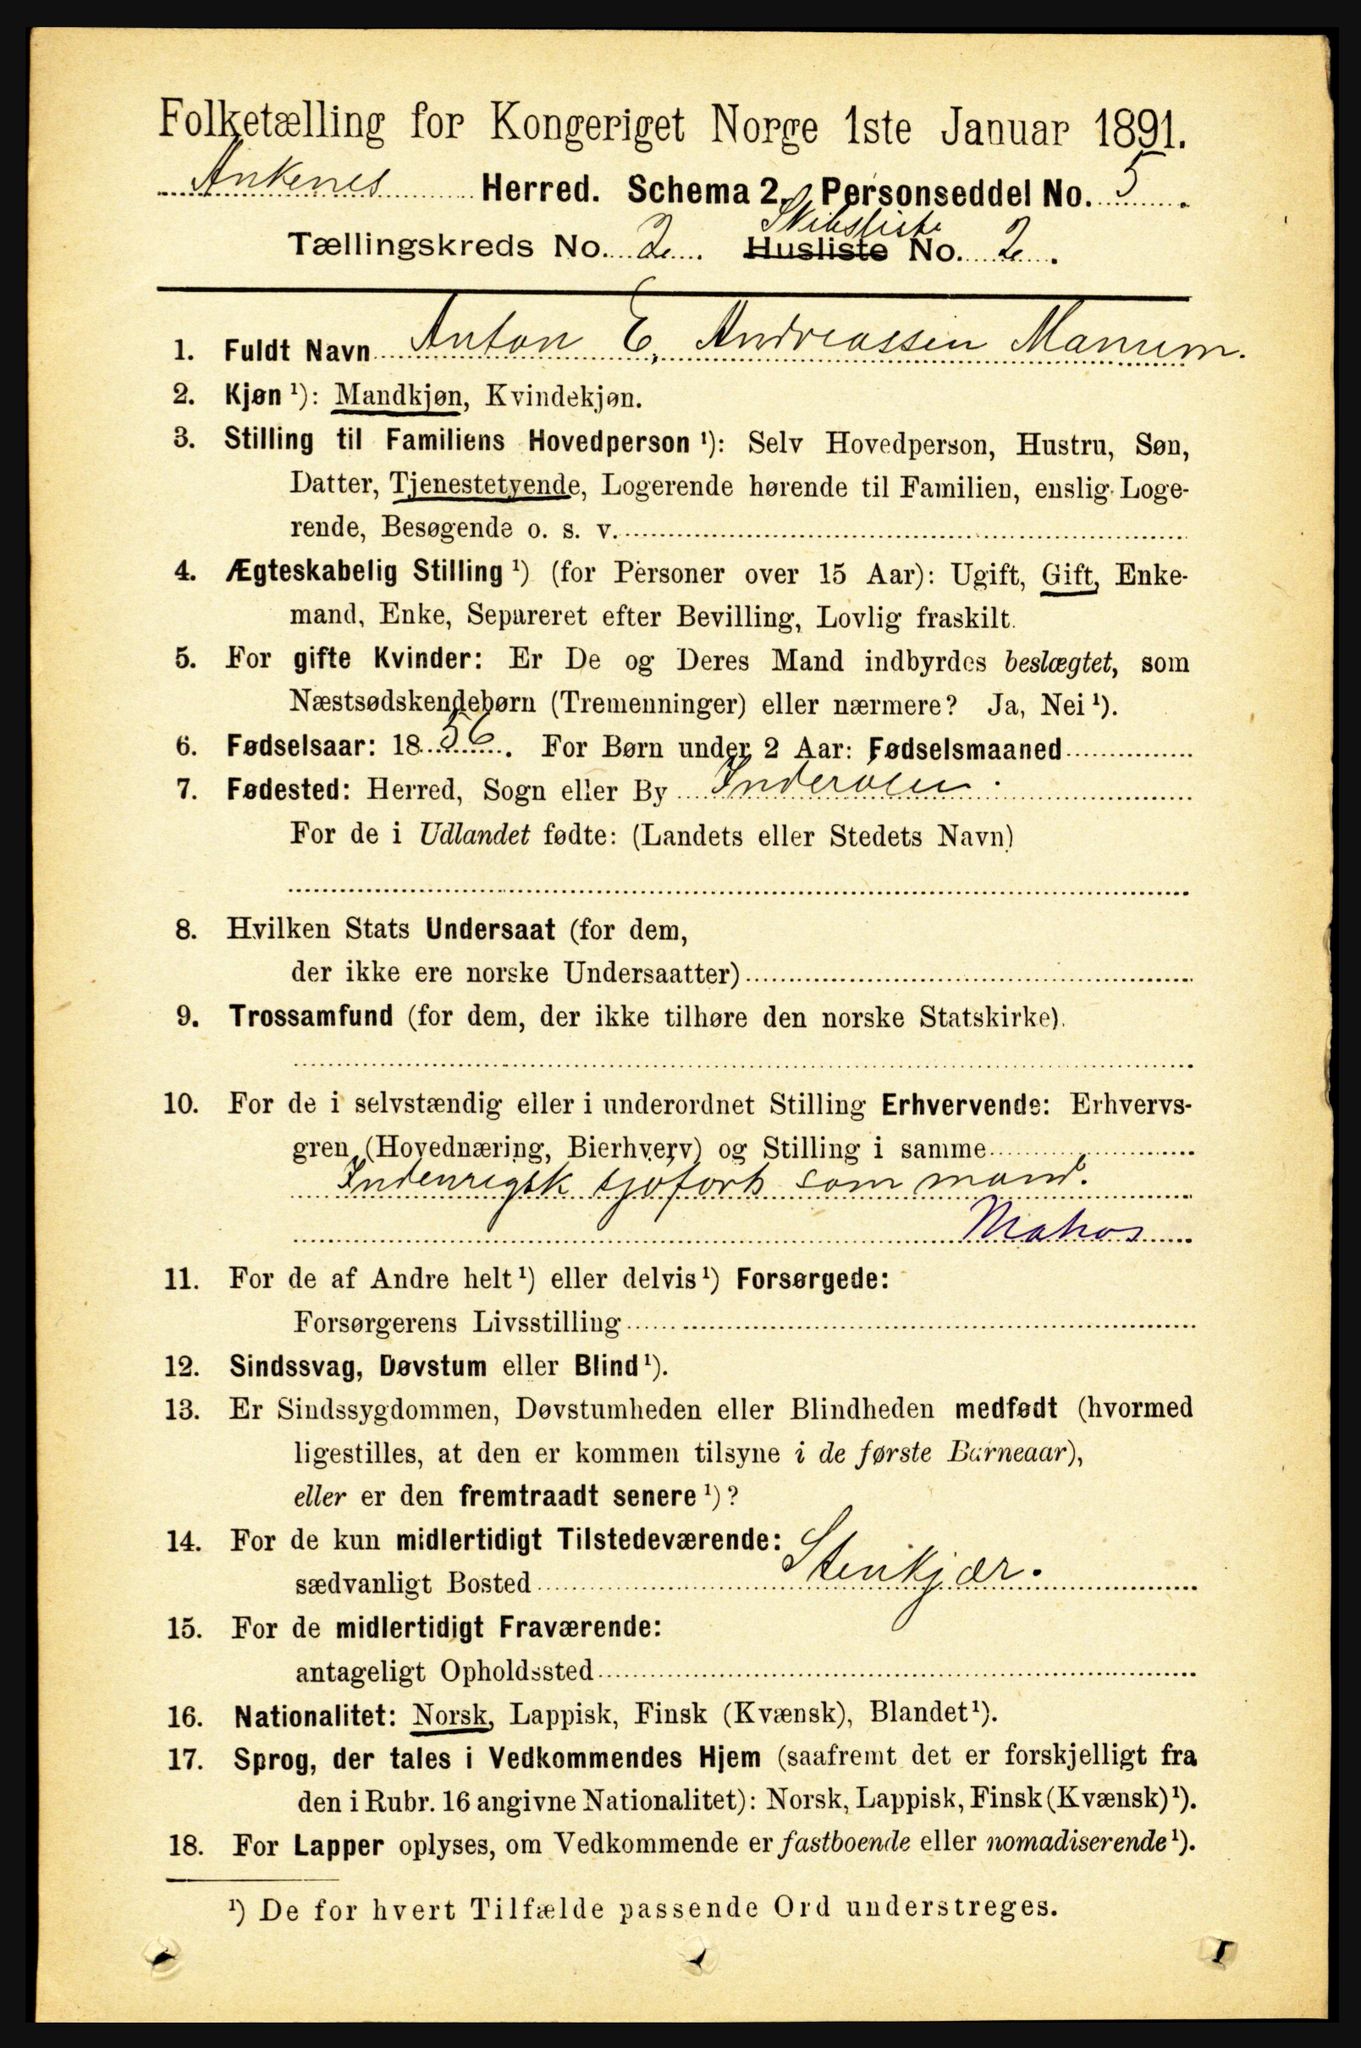 Folketælling for Kongeriget Norge 1ste Januar 1891.
Ankenes Herred. Schema 2. Personseddel No. 5.
Skibsliste
Tællingskreds No. 2. Husliste No. 2.
1. Fuldt Navn Anton E. Andreassen Manum.
2. Kjøn ¹): Mandkjøn, Kvindekjøn.
3. Stilling til Familiens Hovedperson ¹): Selv Hovedperson, Hustru, Søn,
Datter, Tjenestetyende, Logerende hørende til Familien, enslig Loge-
rende, Besøgende o. s. v.
4. Ægteskabelig Stilling ¹) (for Personer over 15 Aar): Ugift, Gift, Enke-
mand, Enke, Separeret efter Bevilling, Lovlig fraskilt.
5. For gifte Kvinder: Er De og Deres Mand indbyrdes beslægtet, som
Næstsødskendebørn (Tremenninger) eller nærmere? Ja, Nei ¹).
6. Fødselsaar: 1856. For Børn under 2 Aar: Fødselsmaaned
7. Fødested: Herred, Sogn eller By Inderøen.
For de i Udlandet fødte: (Landets eller Stedets Navn)
8. Hvilken Stats Undersaat (for dem,
der ikke ere norske Undersaatter)
9. Trossamfund (for dem, der ikke tilhøre den norske Statskirke).
10. For de i selvstændig eller i underordnet Stilling Erhvervende: Erhvervs-
gren (Hovednæring, Bierhverv) og Stilling i samme
Indenrigsk sjøfart som mand.
Matros
11. For de af Andre helt ¹) eller delvis ¹) Forsørgede:
Forsørgerens Livsstilling
12. Sindssvag, Døvstum eller Blind ¹).
13. Er Sindssygdommen, Døvstumheden eller Blindheden medfødt (hvormed
ligestilles, at den er kommen tilsyne i de første Barneaar),
eller er den fremtraadt senere ¹)?
14. For de kun midlertidigt Tilstedeværende:
sædvanligt Bosted Stenkjær.
15. For de midlertidigt Fraværende:
antageligt Opholdssted
16. Nationalitet: Norsk, Lappisk, Finsk (Kvænsk), Blandet ¹).
17. Sprog, der tales i Vedkommendes Hjem (saafremt det er forskjelligt fra
den i Rubr. 16 angivne Nationalitet): Norsk, Lappisk, Finsk (Kvænsk) ¹).
18. For Lapper oplyses, om Vedkommende er fastboende eller nomadiserende ¹).
¹) De for hvert Tilfælde passende Ord understreges.